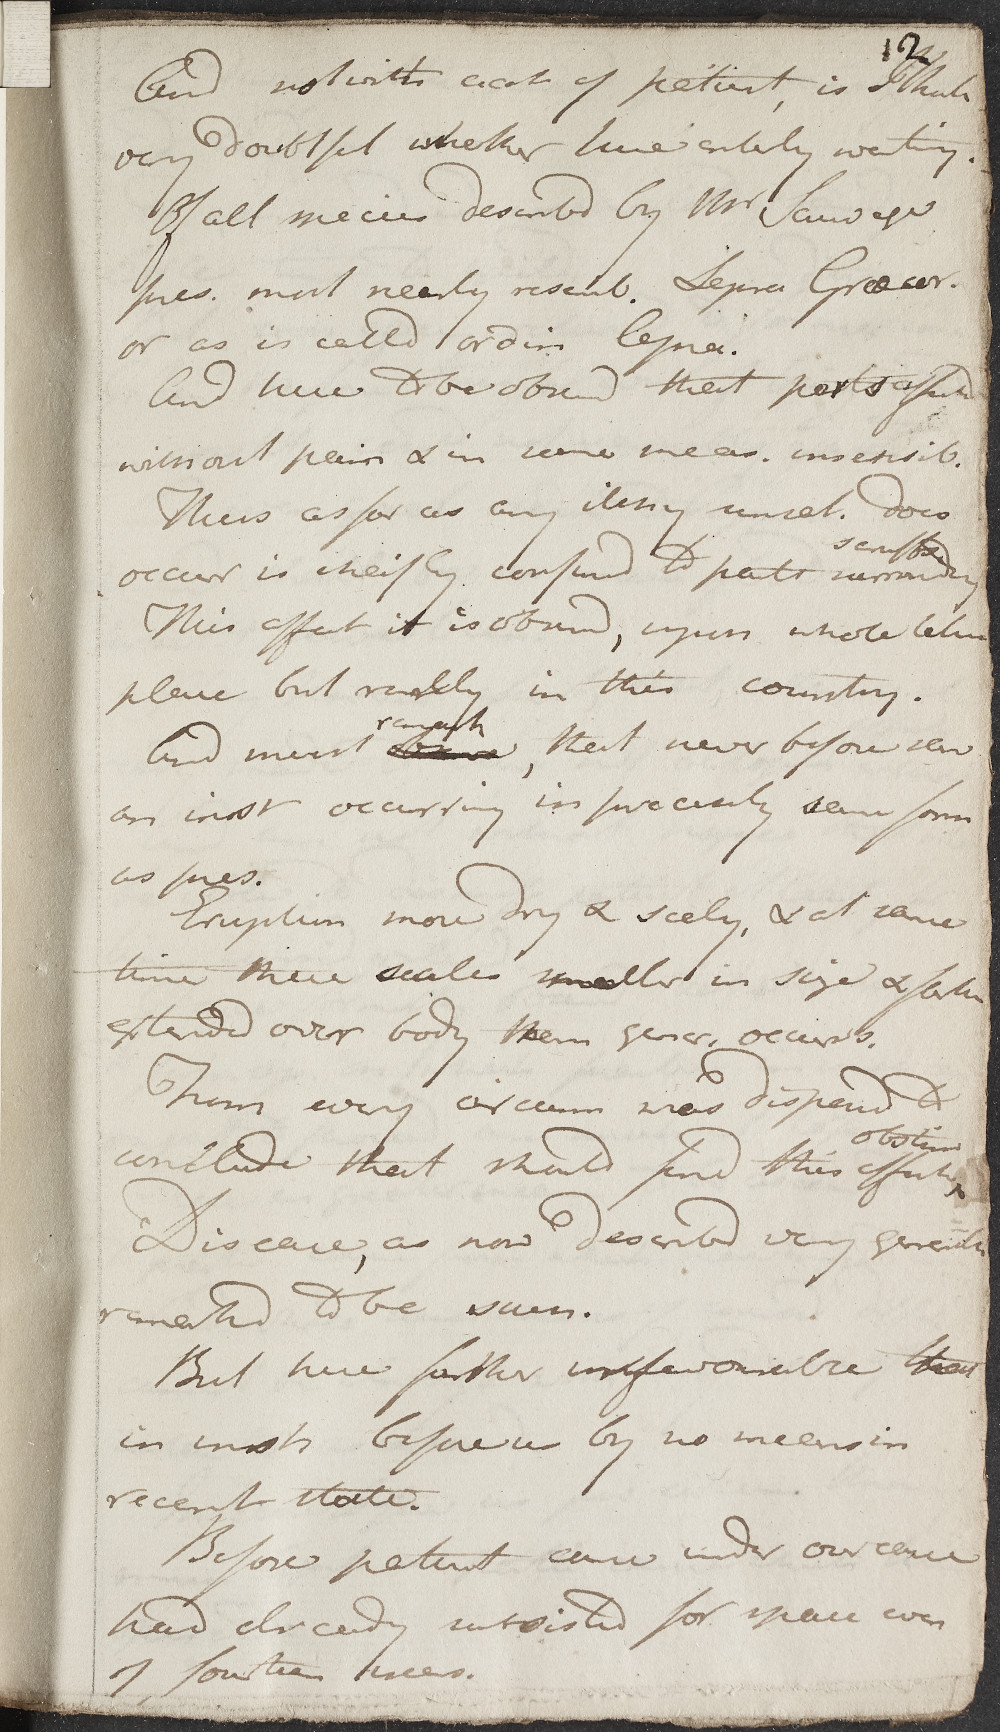 12
And notwith acct of patient, is I think
very doubtful whether here entirely wanting.
Of all species described by Mr Sauvage
pres. most nearly resemb. Lepra Græcor.
or as is called ordin Lepra.
And here to be observd that parts affected
without pain & in some meas. insensib.
Thus as far as any itching unset. does
occur is cheifly confined to parts surrounding
scruffs
This effect it is observd, upon whole takes
place but rarely in this country.
And must remark, that never before saw
an inst occurring in precisely same form
as pres.
Eruption more dry & scaly, & at same
time these scales smaller in size & farther
extended over body than gener. occurs.
From every circum was disposed to
conclude that should find this obstin
affection
Disease, as now described very generally
remarked to be such.
But here farther unfavourable that
in inst before us by no means in
recent state.
Before patient came under our care
had already subsisted for space even
of fourteen years.